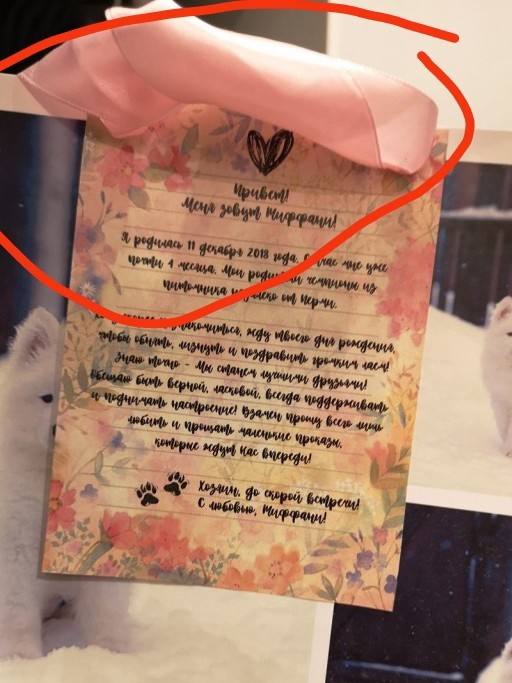 Привет!
Меня зовут Тиффани!
Я родилась 11 декабря 2018 года. Сейчас мне уже
почти 4 месяца. Мои родители чемпионы из
питомника недалеко от Перми.
познакомиться, жду твоего дня рождения,
чтобы обнять, лизнуть и поздравить громким лаем!
Знаю точно - мы станем лучшими друзьями!
Обещаю быть верной, ласковой, всегда поддерживать
и поднимать настроение! Взамен прошу всего лишь
любить и прощать маленькие проказы,
которые ждут нас впереди!
до скорой встречи!
С любовью, Тиффани!